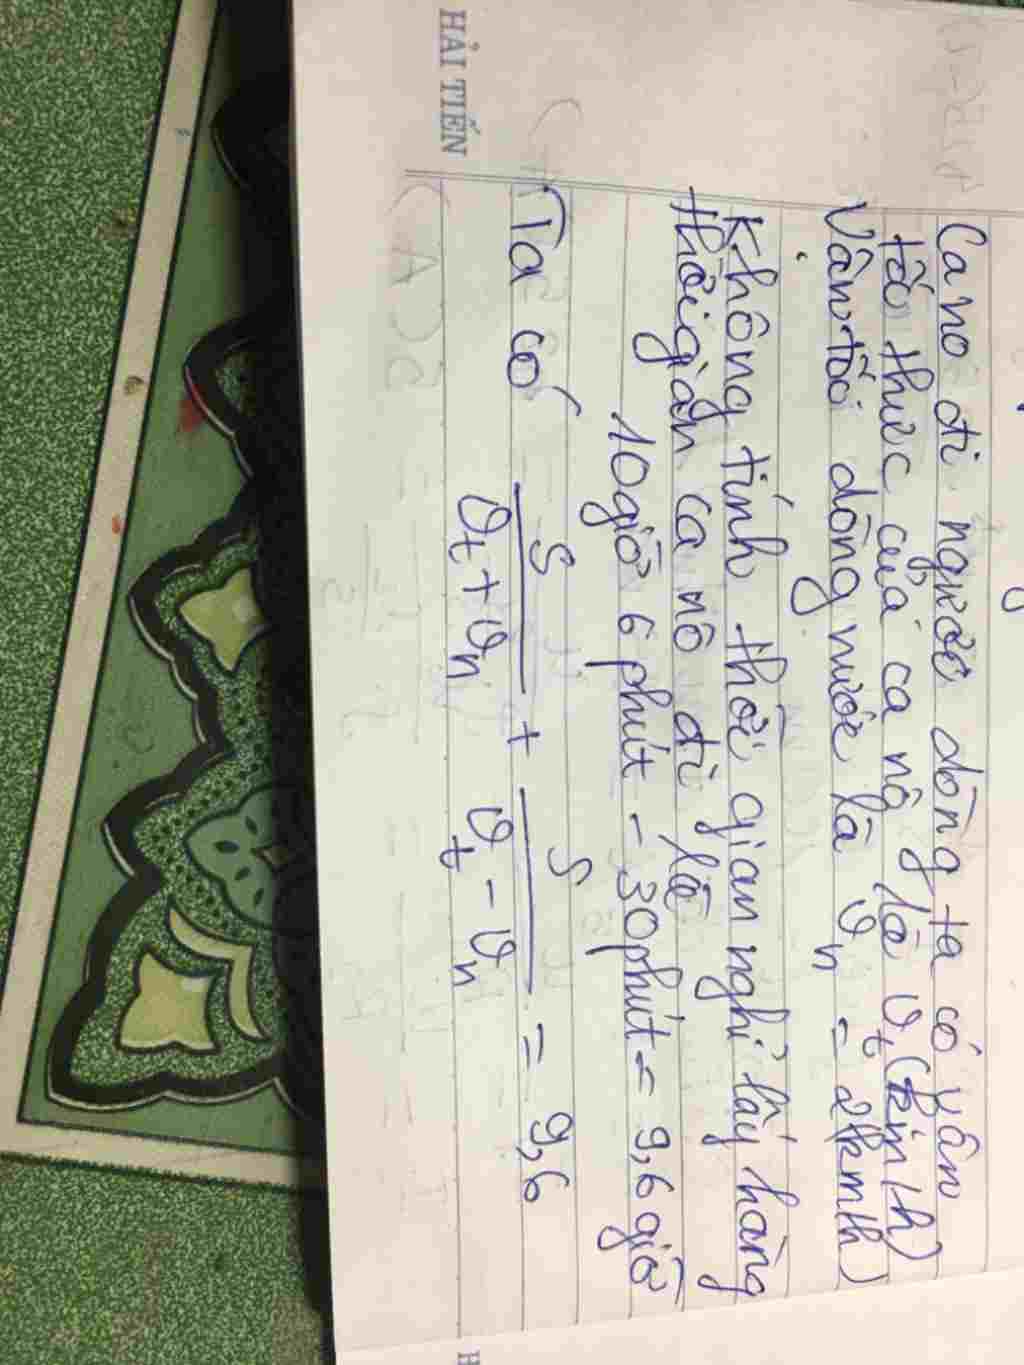 HẢI TIẾN
Ca no đi ngược dòng ta có vận
tốc thực của ca nô là vt (km/h)
Vận tốc dòng nước là vn = 2(km/h)
Không tính thời gian nghỉ lấy hàng
thời gian ca nô đi là
10 giờ 6 phút - 30 phút = 9,6 giờ
Ta có S / (vt + vn) + S / (vt - vn) = 9,6
H